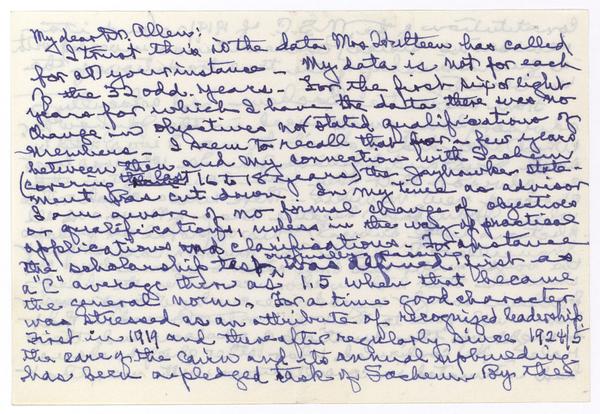 My dear Dr. Allen:
I trust this is the data Mrs. Hulteen has called
for at your instance - My data is not for each
of the 32 odd years. For the first six or eight
years for which I have the data there was no
change in objectives nor stated qualifications of
members - I seem to recall that for a few years
between then and my connection with Sachem
(covering the last 16 to 18 years) the Jayhawker state-
ment was cut down. In my time as advisor
I am aware of no formal change of objectives
or qualifications, unless in the way of practical
applications and classifications. For instance
the scholarship task, originally was defined first as
a "C" average then as 1.5 when that became
the general norm. For a time good character
was stressed as an attribute of recognized leadership
First in 1919 and thereafter regularly since 1924/5
the care of the cairn and its annual upbuilding
has been a pledged task of Sachem By the